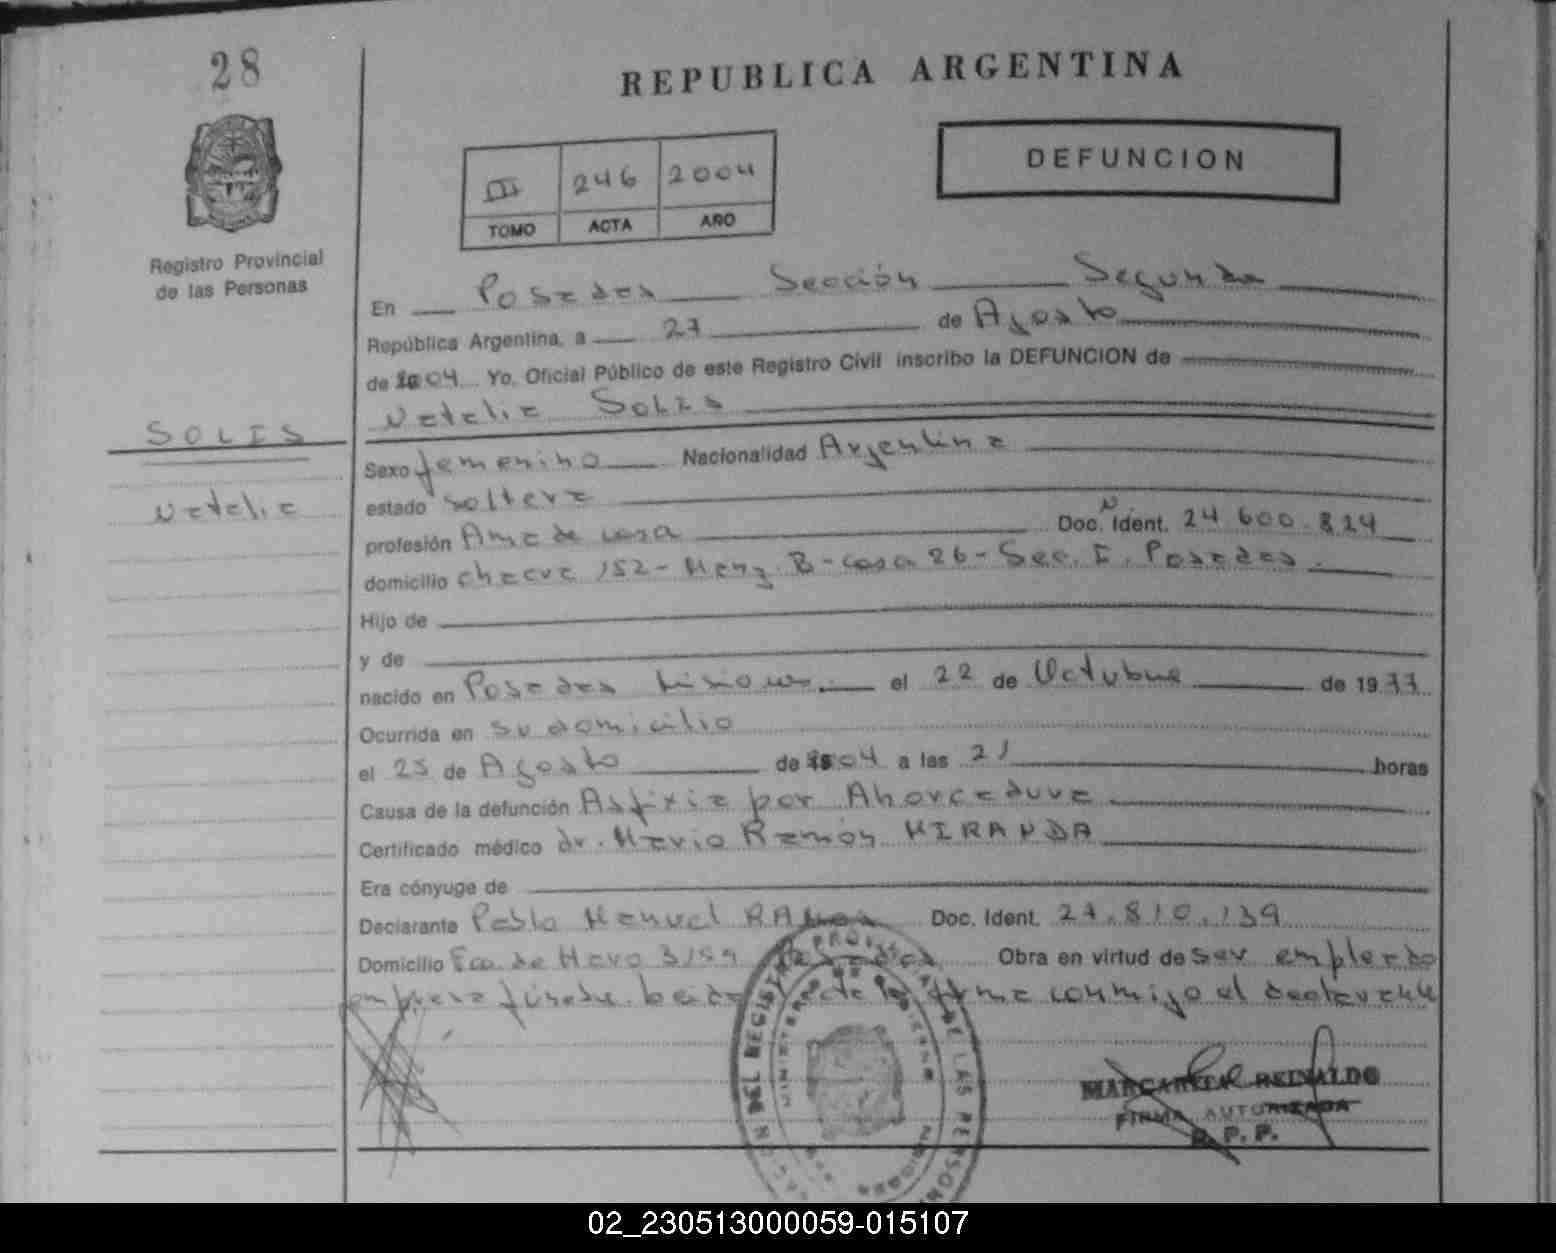 28
REPUBLICA ARGENTINA
DEFUNCION
III 246 2004
TOMO ACTA AÑO
Registro Provincial
de las Personas
En Posadas Sección Segunda
República Argentina, a 27 de Agosto
de 2004 Yo, Oficial Público de este Registro Civil inscribo la DEFUNCION de
Natalia SOLIS
SOLIS
Natalia
Sexo femenino Nacionalidad Argentina
estado soltera
profesión Ama de casa Doc. N Ident. 24.600.824
domicilio chacra 152 - Manz. B - casa 26 - Sec. I. Posadas.
Hijo de
y de
nacido en Posadas Misiones el 22 de Octubre de 1977
Ocurrida en su domicilio
el 25 de Agosto de 2004 a las 21 horas
Causa de la defunción Asfixia por Ahorcadura
Certificado médico dr. Mario Ramón MIRANDA
Era cónyuge de
Declarante Pablo Manuel Doc. Ident. 27.810.139
Domicilio Fco. de Haro 3159 Posadas Obra en virtud de ser empleado
empresa firma conmigo el declarante
MARGARITA REINALDO
FIRMA AUTORIZADA
R. P. P.
02_230513000059-015107